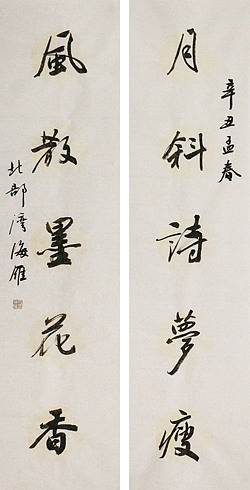 辛丑孟春
月斜詩夢瘦
風散墨花香
北部灣海雁